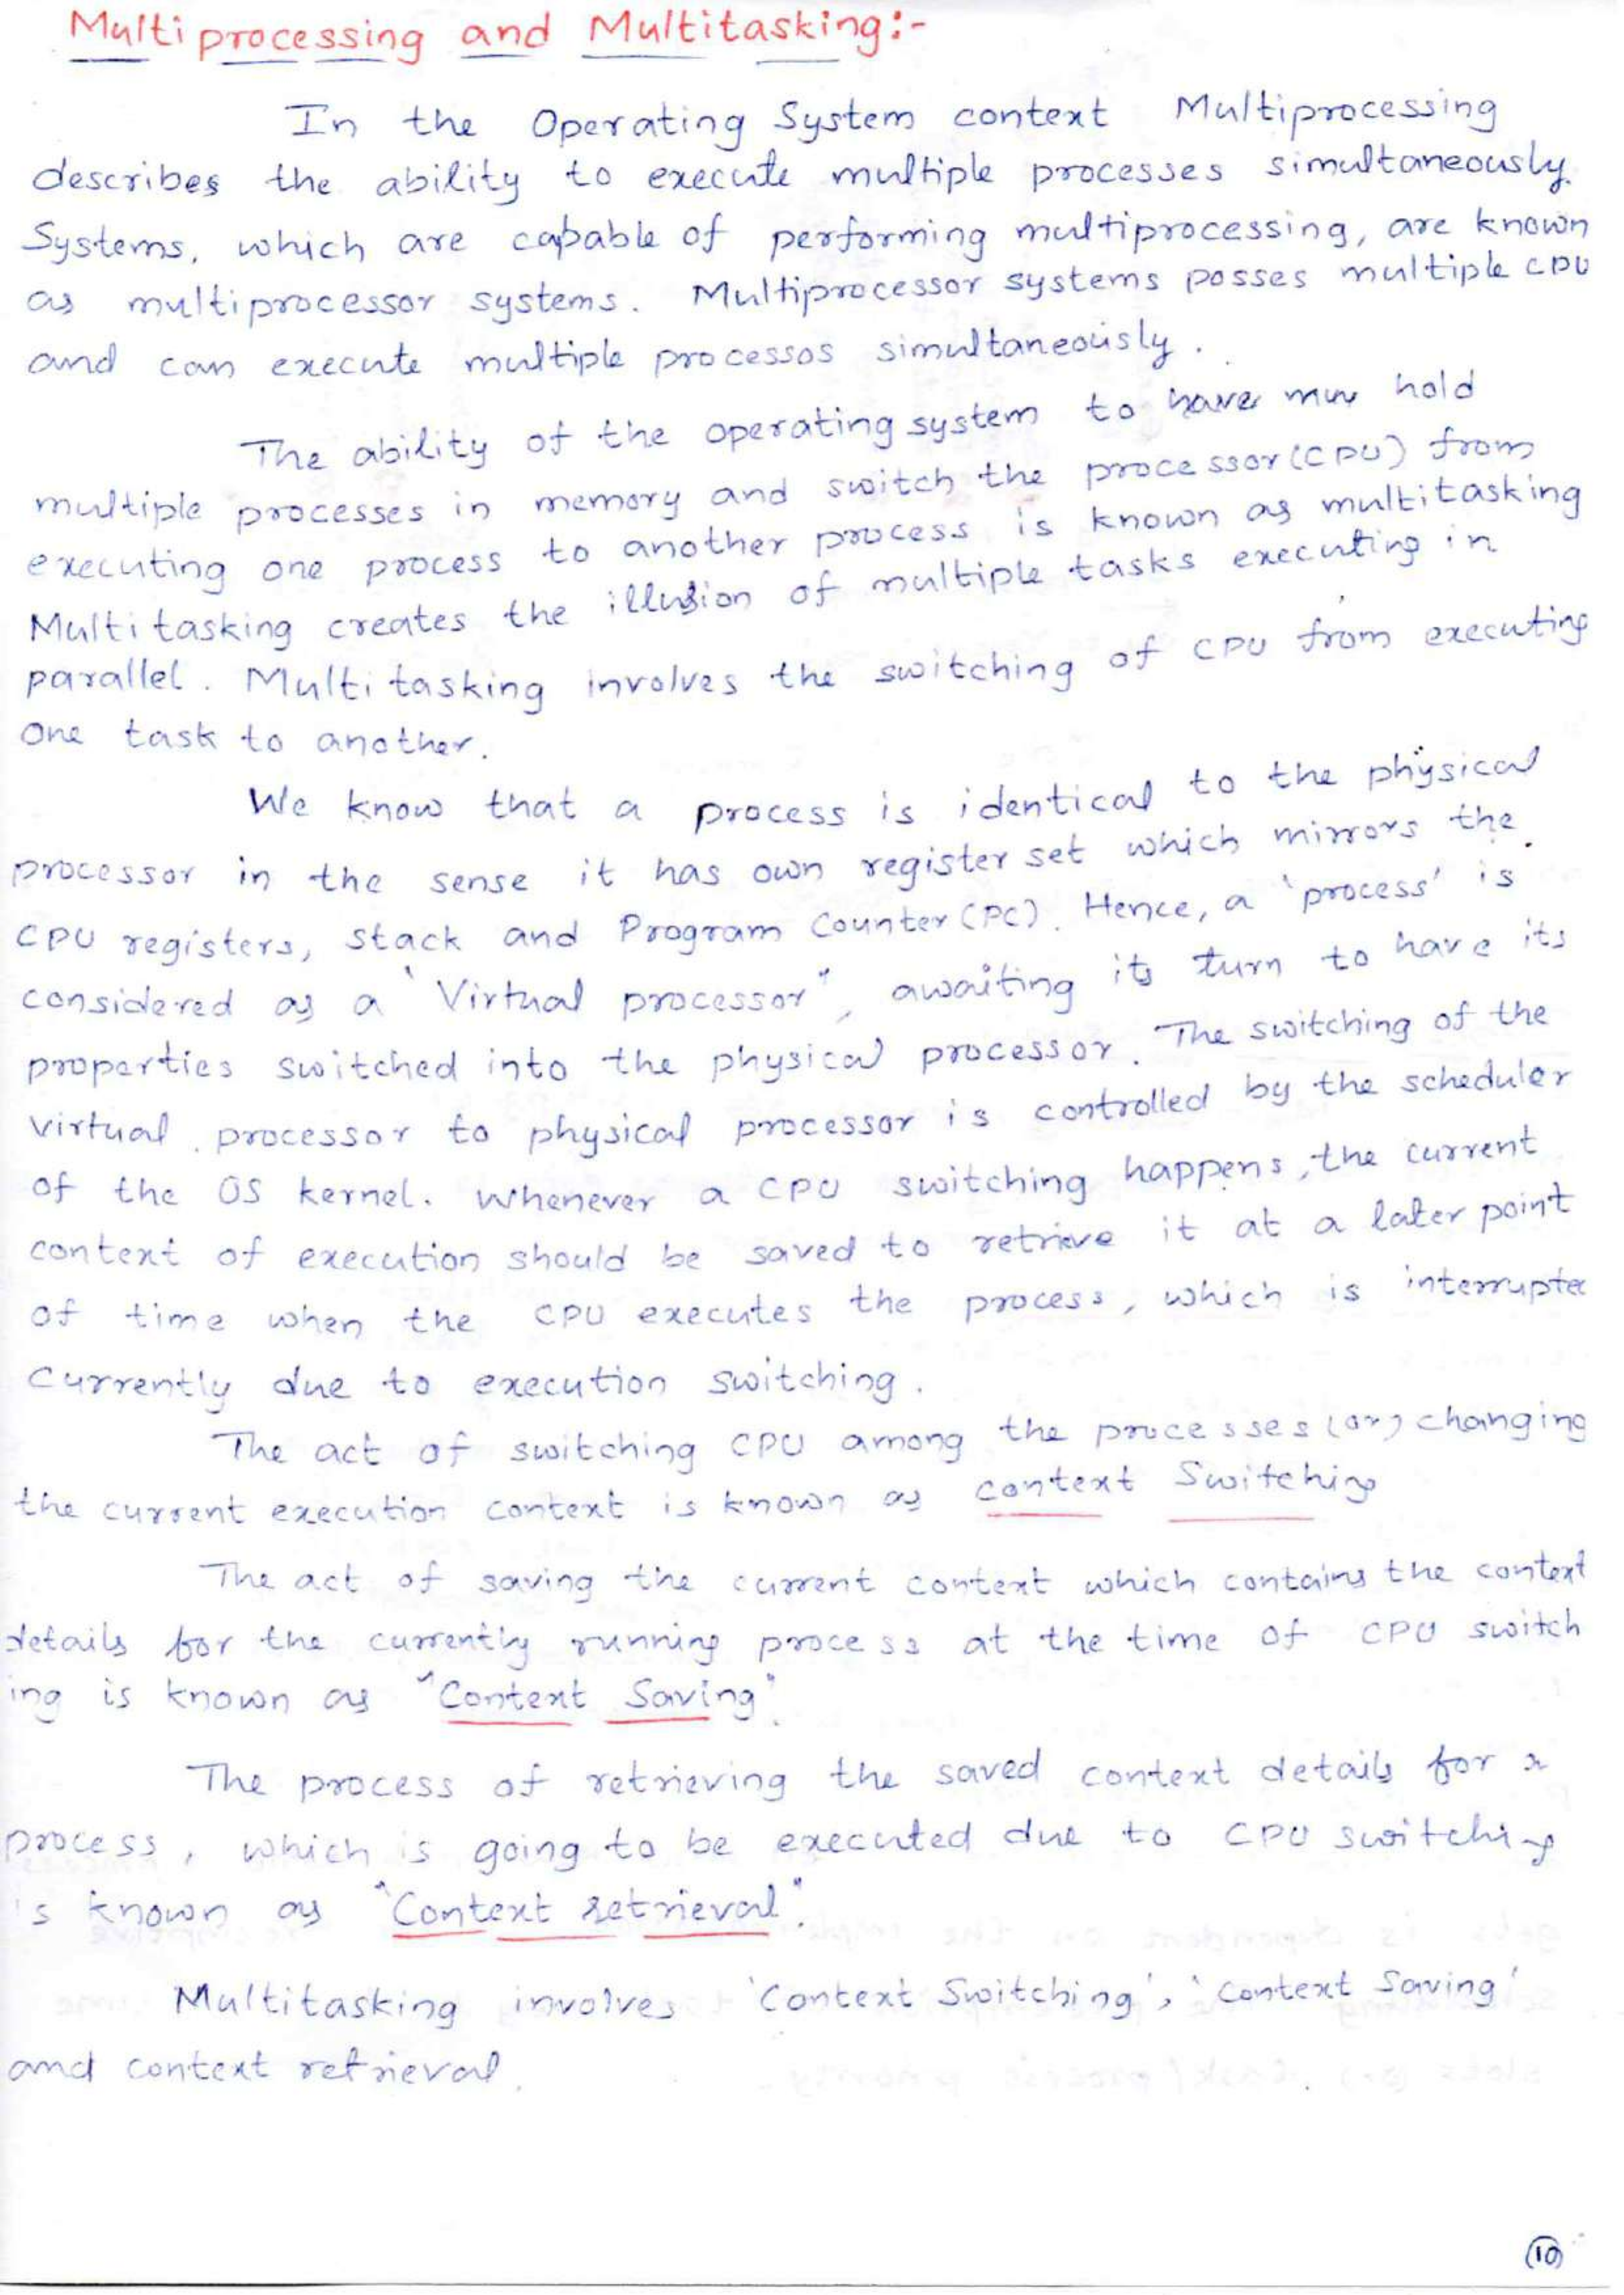 Multiprocessing and Multitasking:-
In the Operating System context Multiprocessing
describes the ability to execute multiple processes simultaneously.
Systems, which are capable of performing multiprocessing, are known
as multiprocessor systems. Multiprocessor systems posses multiple CPU
and can execute multiple processos simultaneously.
The ability of the operating system to have hold
multiple processes in memory and switch the processor (CPU) from
executing one process to another process is known as multitasking
Multitasking creates the illusion of multiple tasks executing in
parallel. Multitasking involves the switching of CPU from executing
One task to another.
We know that a process is identical to the physical
processor in the sense it has own register set which mirrors the
CPU registers, stack and Program Counter (PC). Hence, a 'process' is
considered as a "Virtual processor", awaiting its turn to have its
properties switched into the physical processor. The switching of the
virtual processor to physical processor is controlled by the scheduler
of the OS kernel. Whenever a CPU switching happens, the current
context of execution should be saved to retrieve it at a later point
of time when the CPU executes the process, which is interrupte
Currently due to execution switching.
The act of switching CPU among the processes (or) changing
the current execution context is known as context Switching
The act of saving the current context which contains the context
details for the currently running process at the time of CPU switch
ing is known as "Context Saving".
The process of retrieving the saved context details for a
process, which is going to be executed due to CPU switching
is known as "Context retrieval".
Multitasking involves 'Context Switching', 'Context Saving'
and context retrieval.
10